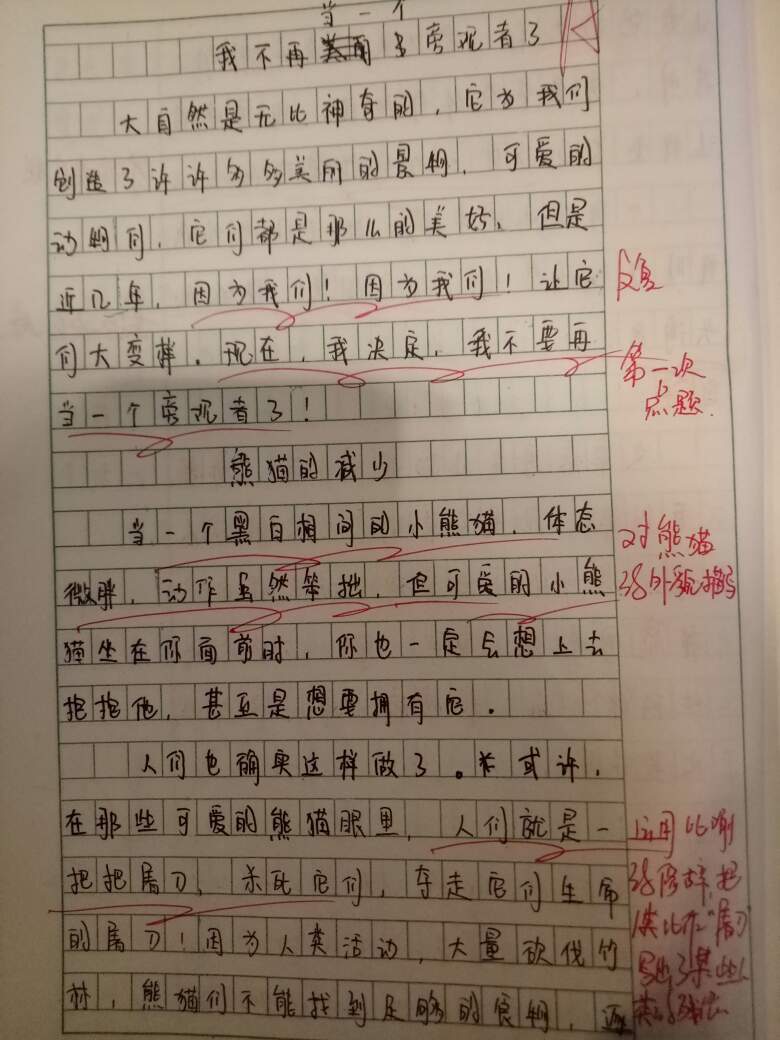 当一个
我不再当旁观者了
大自然是无比神奇的，它为我们
创造了许许多多美丽的景物，可爱的
动物们，它们都是那么的美好，但是
近几年，因为我们！因为我们！让它
反复
们大变样。现在，我决定，我不要再
第一次
点题.
当一个旁观者了！
熊猫的减少
当一个黑白相间的小熊猫，体态
对熊猫
微胖，动作虽然笨拙，但可爱的小熊
的外貌描写
猫坐在你面前时，你也一定会想上去
抱抱他，甚至是想要拥有它。
人们也确实这样做了。或许，
在那些可爱的熊猫眼里，人们就是一
运用比喻
把把屠刀，杀死它们，夺走它们生命
的修辞，把
人类比作"屠刀"
的屠刀！因为人类活动，大量砍伐竹
写出了某些人
林，熊猫们不能找到足够的食物，逐
类的残忍